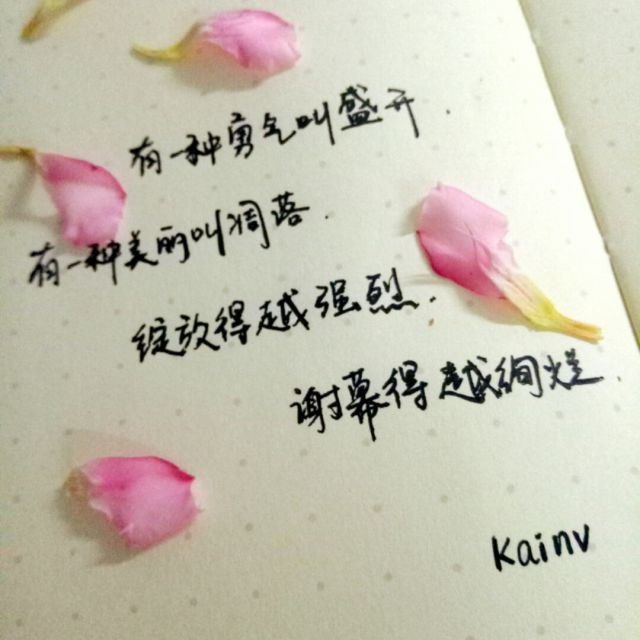 有一种勇气叫盛开.
有一种美丽叫凋落.
绽放得越强烈.
谢幕得越绚烂.
Kainv